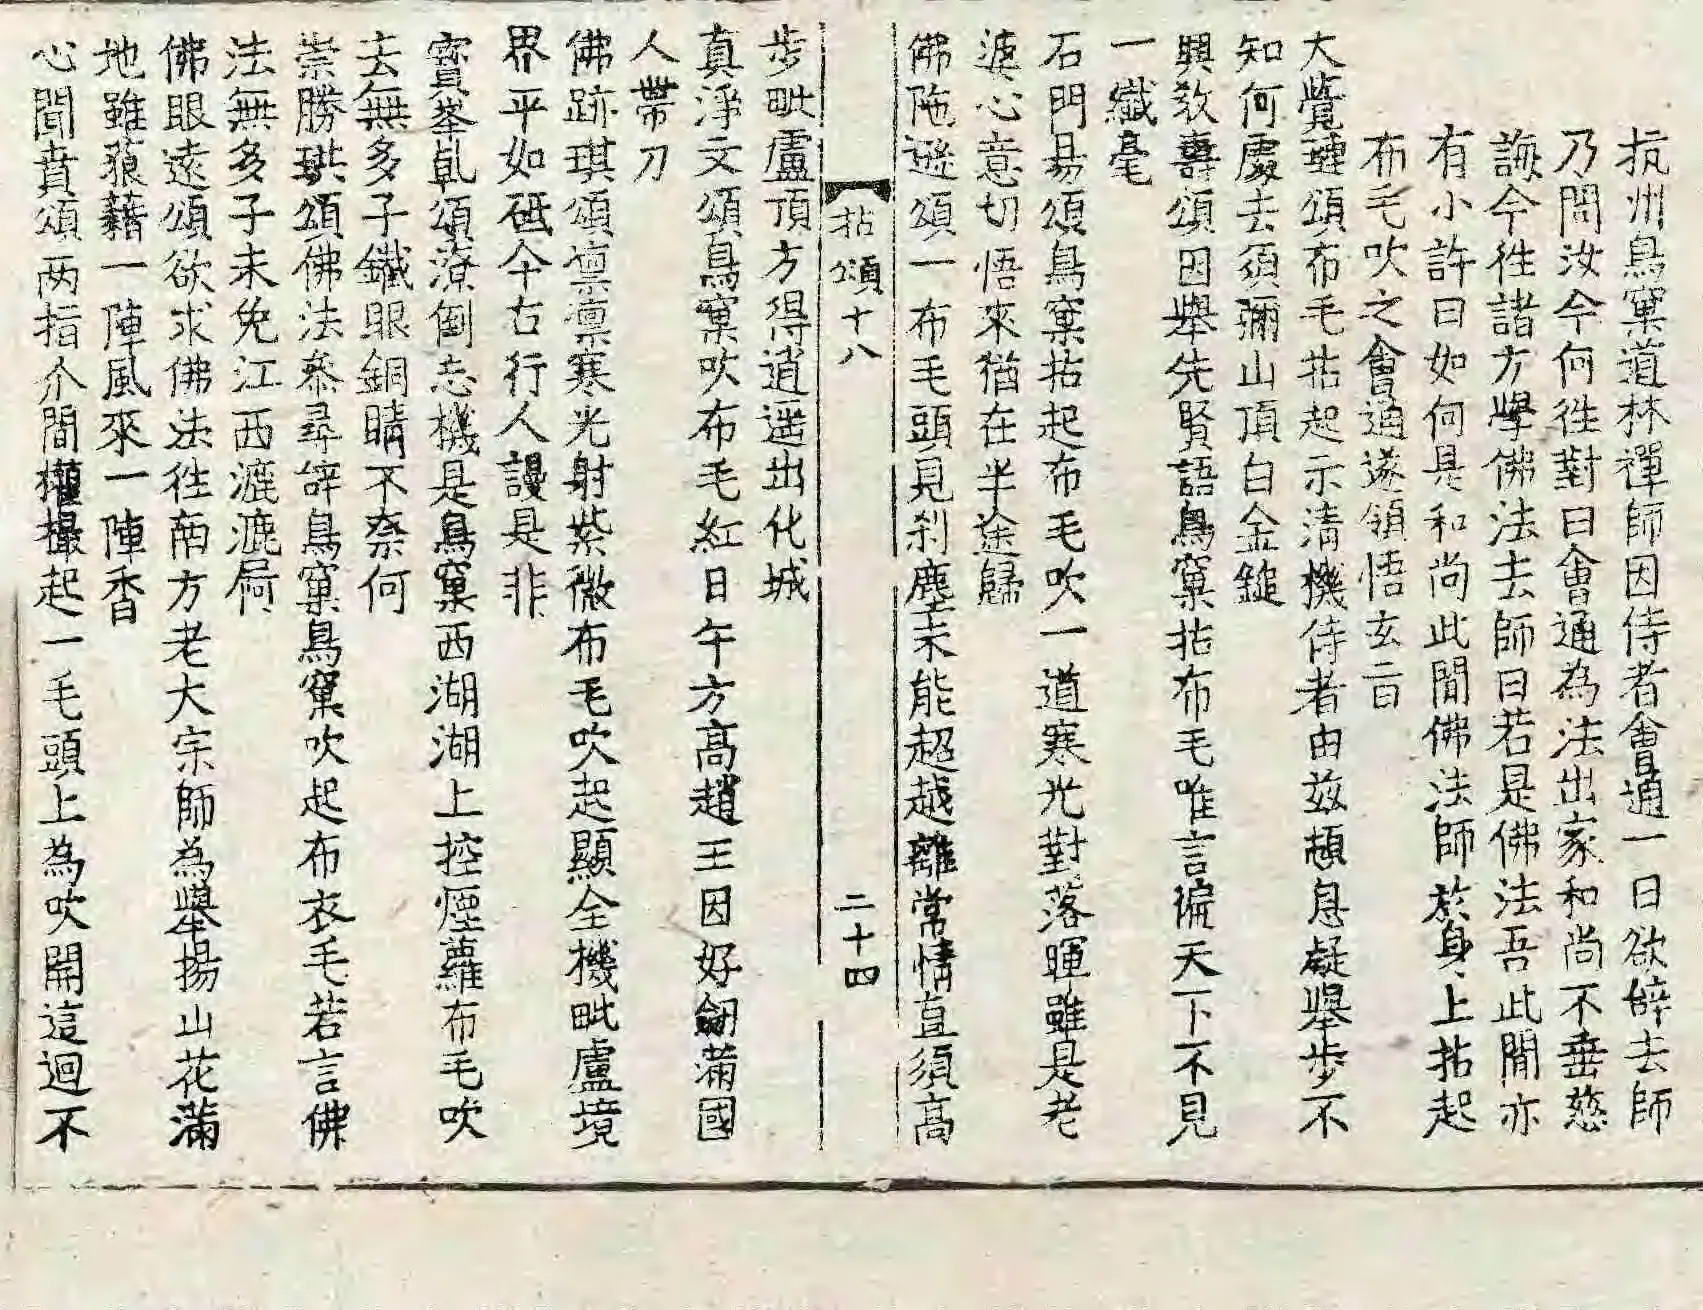 杭州鳥窠道林禪師因侍者會通一日欲辝去師
乃問汝今何徃對曰會通為法出家和尚不垂慈
誨今徃諸方學佛法去師曰若是佛法吾此間亦
有小許曰如何是和尚此間佛法師於身上拈起
布毛吹之會通遂領悟玄旨
大覺璉頌布毛拈起示清機侍者由玆頓息疑舉步不
知何處去須彌山頂白金鎚
興教壽頌因舉先賢語鳥窠拈布毛唯言徧天下不見
一纖毫
石門易頌鳥窠拈起布毛吹一道寒光對落暉雖是老
婆心意切悟來猶在半途歸
佛陁遜頌一布毛頭見刹塵未能超越離常情直須高
拈頌十八 二十四
步毗盧頂方得逍遥出化城
真淨文頌鳥窠吹布毛紅日午方高趙王因好劒滿國
人帶刀
佛跡琪頌凛凛寒光射紫微布毛吹起顯全機毗盧境
界平如砥今古行人謾是非
寳峯乹頌潦倒忘機是鳥窠西湖湖上控煙蘿布毛吹
去無多子鐵眼銅睛不柰何
崇勝珙頌佛法叅尋辝鳥窠鳥窠吹起布衣毛若言佛
法無多子未免江西漉漉屙
佛眼遠頌欲求佛法徃南方老大宗師為舉揚山花滿
地雖蒗藉一陣風來一陣香
心聞賁頌两指介間欇撮起一毛頭上為吹開這迴不